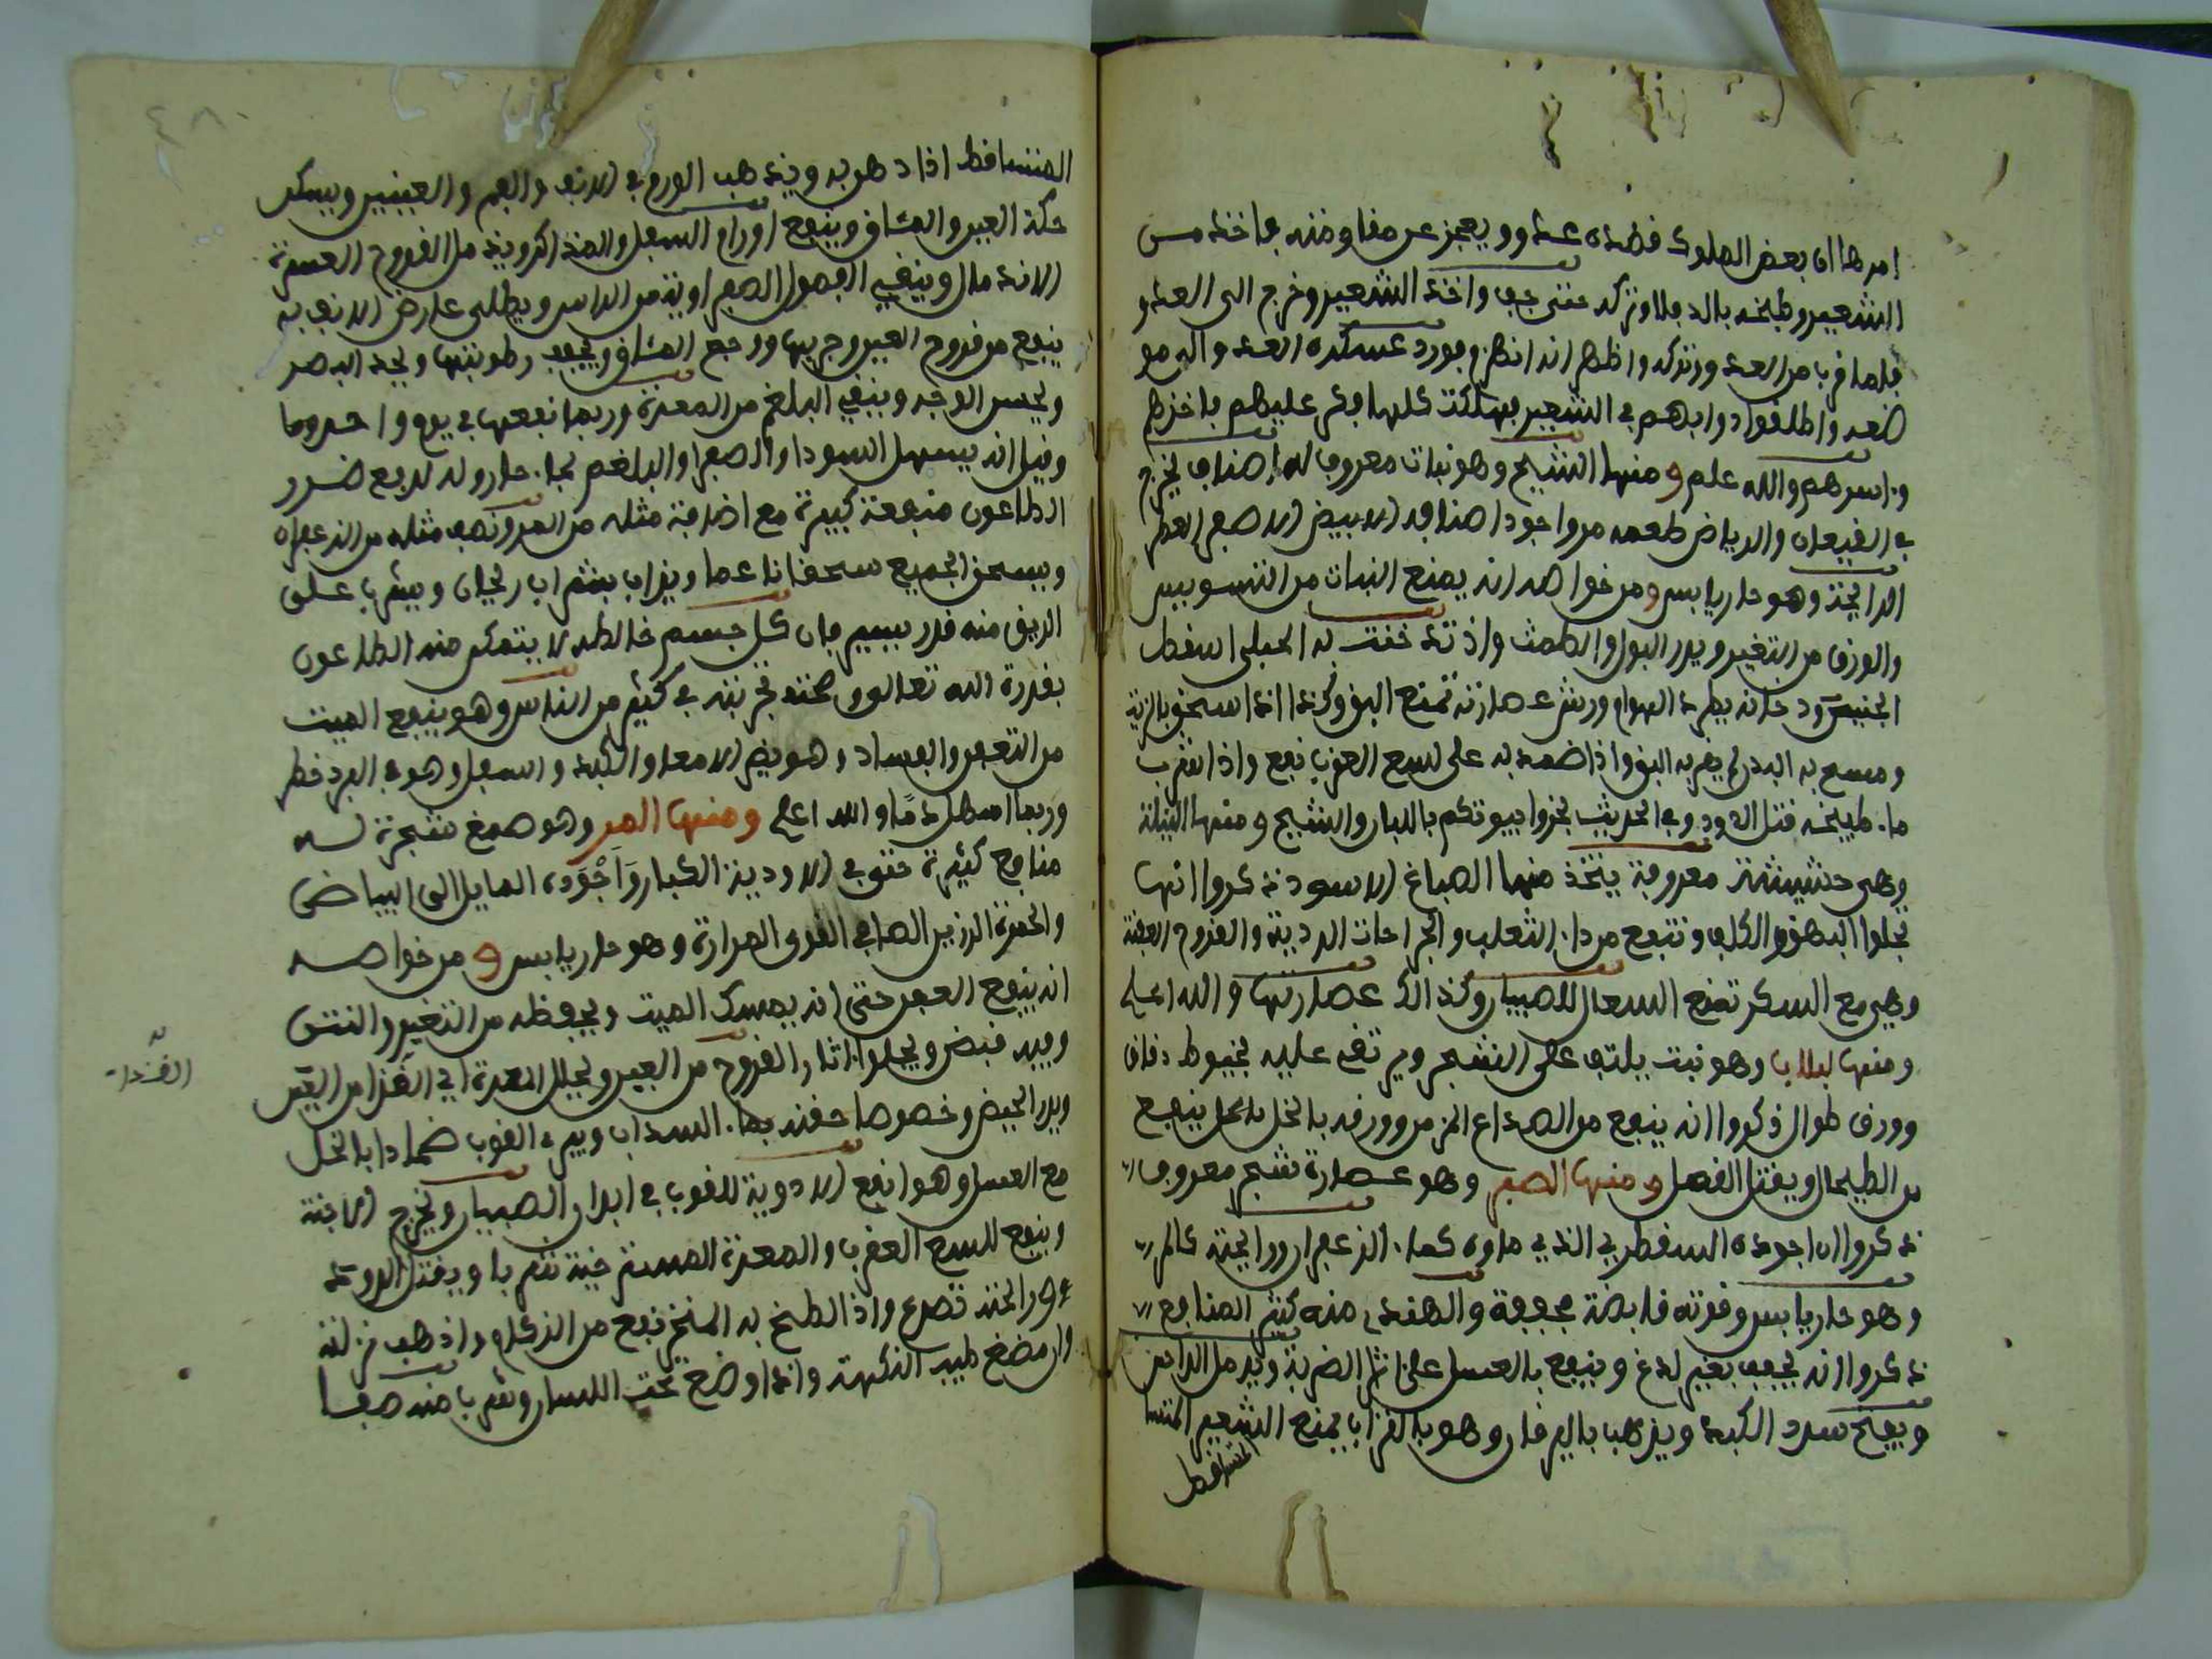 امرها ان بعض الملوك قصده عدو ويعجز عن مقاومته فاخذ من
الشعير وطبخه بالدفلا وتركه حتى جف واخذ الشعير وخرج الى العدو
فلما قرب من العدو وتركه واظهر انه انهزم فورد عسكره العدو
واطلقوا دوابهم في الشعير فهلكت كلها فكر عليهم فاخذهم
واسرهم والله علم ومنها الشيح وهو نبات معروف له اصناف يخرج
في القيعان والرياض طعمه مر واجود اصنافه الابيض الاصفر العطر
الرايحة وهو حار يابس ومن خواصه انه يمنع النبات من التسويس
والورق من التغير ويدر البول والطمث واذ تدخنت به الحبلى اسقط
الجنين ودخانه يطرد الهوام ورش عصارته تمنع البق وكذا اذا سحق بالزيت
ومسح به البدن لم يقربه البق واذا ضمد به على لسع العقرب نفع واذا شرب
ما طبيخه قتل الدود وفي الحديث بخروا بيوتكم باللبان والشيح ومنها النيلة
وهي حشيشة معروفة يتخذ منها الصباغ الاسود ذكروا انها
تجلوا البهق والكلف وتنفع من دا الثعلب والجراحات الردية والقروح العفنة
وهي مع السكر تمنع السعال للصبيان وكذالك عصارتها والله اعلم
ومنها لبلاب وهو نبت يلتف على الشجر ويرتقي عليه بخيوط دقاق
وورق طوال ذكروا انه ينفع من الصداع المزمن وورقه بالخل ينفع
من الطيحال ويقتل القمل ومنها الصبر وهو عصارة شجر معروف
ذكروا ان اجوده السقطري الذي ماوه كما الزعفران ورايحته كالمر
وهو حار يابس وقوته قابضة مجففة والهندي منه كثير المنافع
ذكروا انه يجفف بغير لدغ وينفع بالعسل على اثار الضربة ويدمل الداحس
ويفتح سدد الكبد ويذهب باليرقان وهو بالشراب يمنع الشعير المتسا
المتساقط
المتساقط اذا دهن به ويذهب الورم في الانف والفم والعينين ويسكن
حكة العين والمشاق وينفع اورام السفل والمذاكر ويدمل القروح العسرة
الاندمال وينفي الفصول الصفراوية من الراس ويطلى على ارض الانف به
ينفع من قروح العين وجربها ووجع المشاق ويجفف رطوبتها ويحد البصر
ويحسن الوجه وينفي البلغم من المعدة وربما نفعها في يوم واحد وما
وقيل انه يسهل السودا والصفرا والبلغم بما حار وله لدفع ضرر
الطاعون منفعة كبيرة مع اضافة مثله من المر ونصف مثله من الزعفران
ويسحق الجميع سحقا ناعما ويذاب بشراب ريحان ويشرب على
الريق منه قدر يسير فان كل جسم خالطه لا يتمكن منه الطاعون
بقدرة الله تعالى وصحت تجربته في كثير من الناس وهو ينفع الميت
من التعفن والفساد وهو يضر الامعا والكبد والسفل وهو في البرد خطر
وربما اسهل دمًا والله اعلم ومنها المر وهو صمغ شجرة له
منافع كثيرة حتى في الاودية الكبار وَاَجْوَده المايل الى البياض
والحمرة الرزين الصافي القوي المرارة وهو حار يابس ومن خواصه
انه ينفع العفن حتى انه يمسك الميت ويحفظه من التغير والنتن
وفيه قبض ويجلوا اثار القروح من العين ويحلل المدة
ويدر الحيض وخصوصا حقنه بما السداب ويبري القوب ضمادا بالخل
مع العسل وهو انفع الادوية للقوب في ابدان الصبيان ويخرج
وينفع للسع العقرب والمعدة المسترخية شربا ويقتل الدود
ورايحته تصدع واذا لطخ به المنخر نفع من الزكام واذهب نزلته
وان مضغ طيب النكهة واذا وضع تحت اللسان وشربا منه صفا